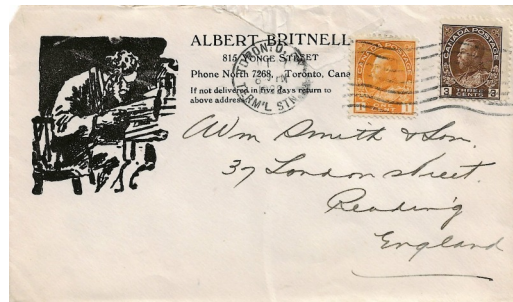 ALBERT BRITNELL
815 YONGE STREET
Phone North 7268, Toronto, Cana
If not delivered in five days return to
above address
TORONTO
TERM'L STN
CANADA POSTAGE
1 CENT 1
CANADA POSTAGE
3 THREE CENTS 3
Wm Smith & Son.
37 London street.
Reading
England